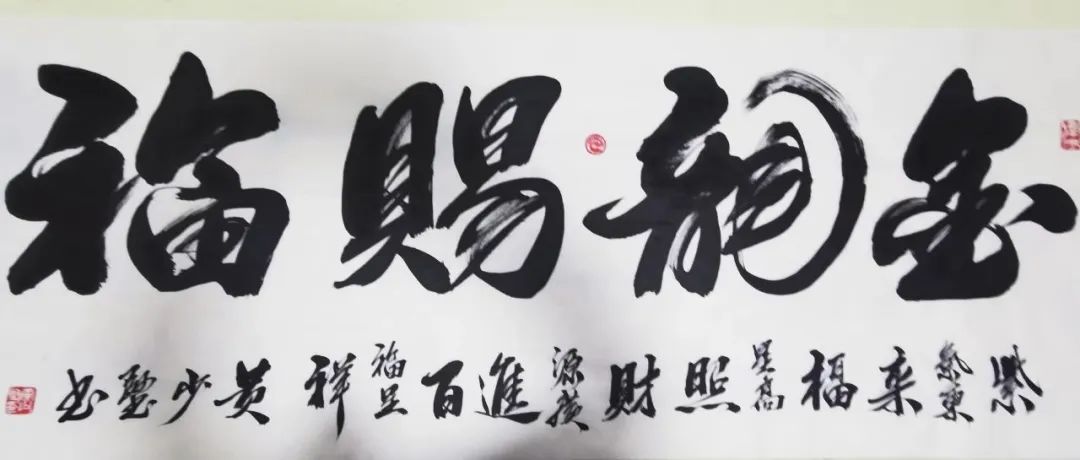 金龍賜福
紫氣東来福星高照財源廣進百福呈祥黄少书